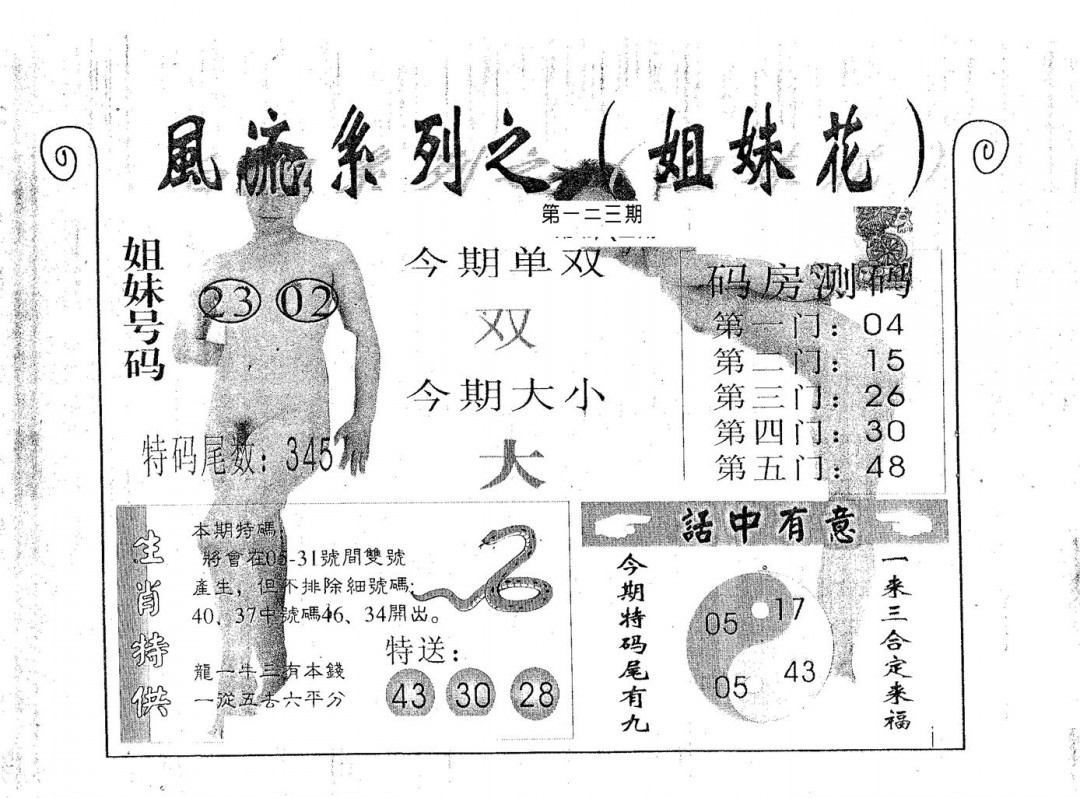 風流系列之（姐妹花）
第一二三期
姐妹号码
23 02
特码尾数：345
今期单双
双
今期大小
大
码房测码
第一门：04
第二门：15
第三门：26
第四门：30
第五门：48
生肖特供
本期特碼：
將會在05-31號間雙號
產生，但不排除細號碼;
40、37中號碼46、34開出。
龍一牛三有本錢
一從五去六平分
特送：
43 30 28
話中有意
今期特码尾有九
05 17
05 43
一来三合定来福